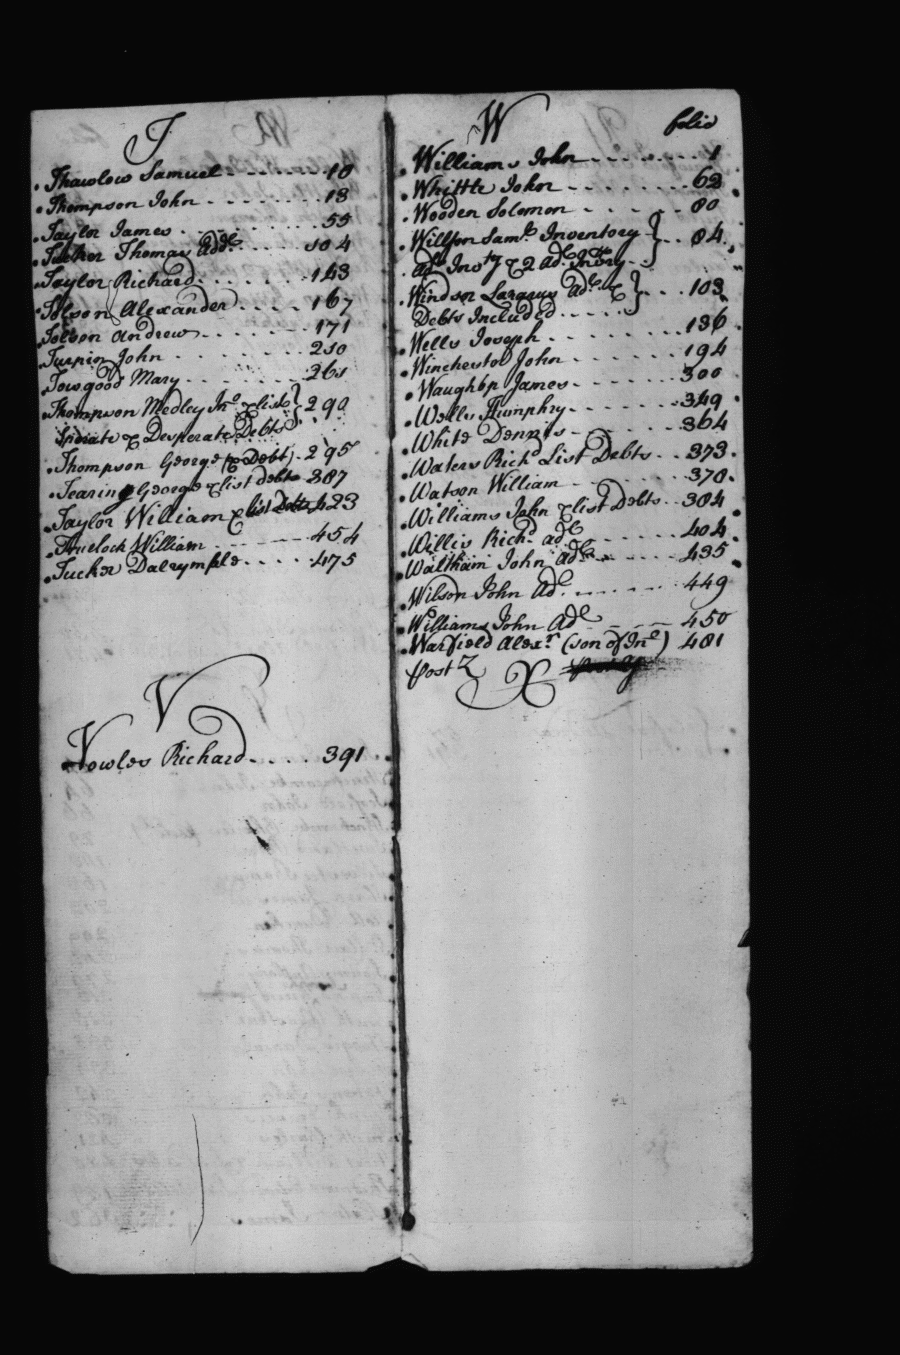 T
Thawlow Samuel 10
Thompson John 18
Taylor James 55
Tucker Thomas Add.l 104
Taylor Richard 143
Tolson Alexander 167
Tolson Andrew 171
Turpin John 210
Towgood Mary 261
Thompson Medley In.o & list } 290
Speriate & Desperate Debts
Thompson George (& Debt) 295
Tearing George & list debts 387
Taylor William & list Debts 423
Thurlock William 454
Tucker Dalrymple 475
V
Vowles Richard 391
W folio
Williams John 1
Whittle John 62
Wooden Solomon 80
Willson Sam.l Inventory } 84
Ad.l Inv.ty & 2 Ad.l Inv.ry
Windsor Lazarus Ad.l & } 103
Debts Included
Wells Joseph 136
Winchester John 194
Waughop James 300
Wells Humphry 349
White Dennis 364
Waters Rich.d List Debts 373
Watson William 378
Williams John & list Debts 384
Willis Rich.d ad.l 404
Waltham John ad.l 435
Wilson John Ad.l 449
Williams John Ad.l 450
Warfield Alex.r (son of Jn.o) 481
post Z
X